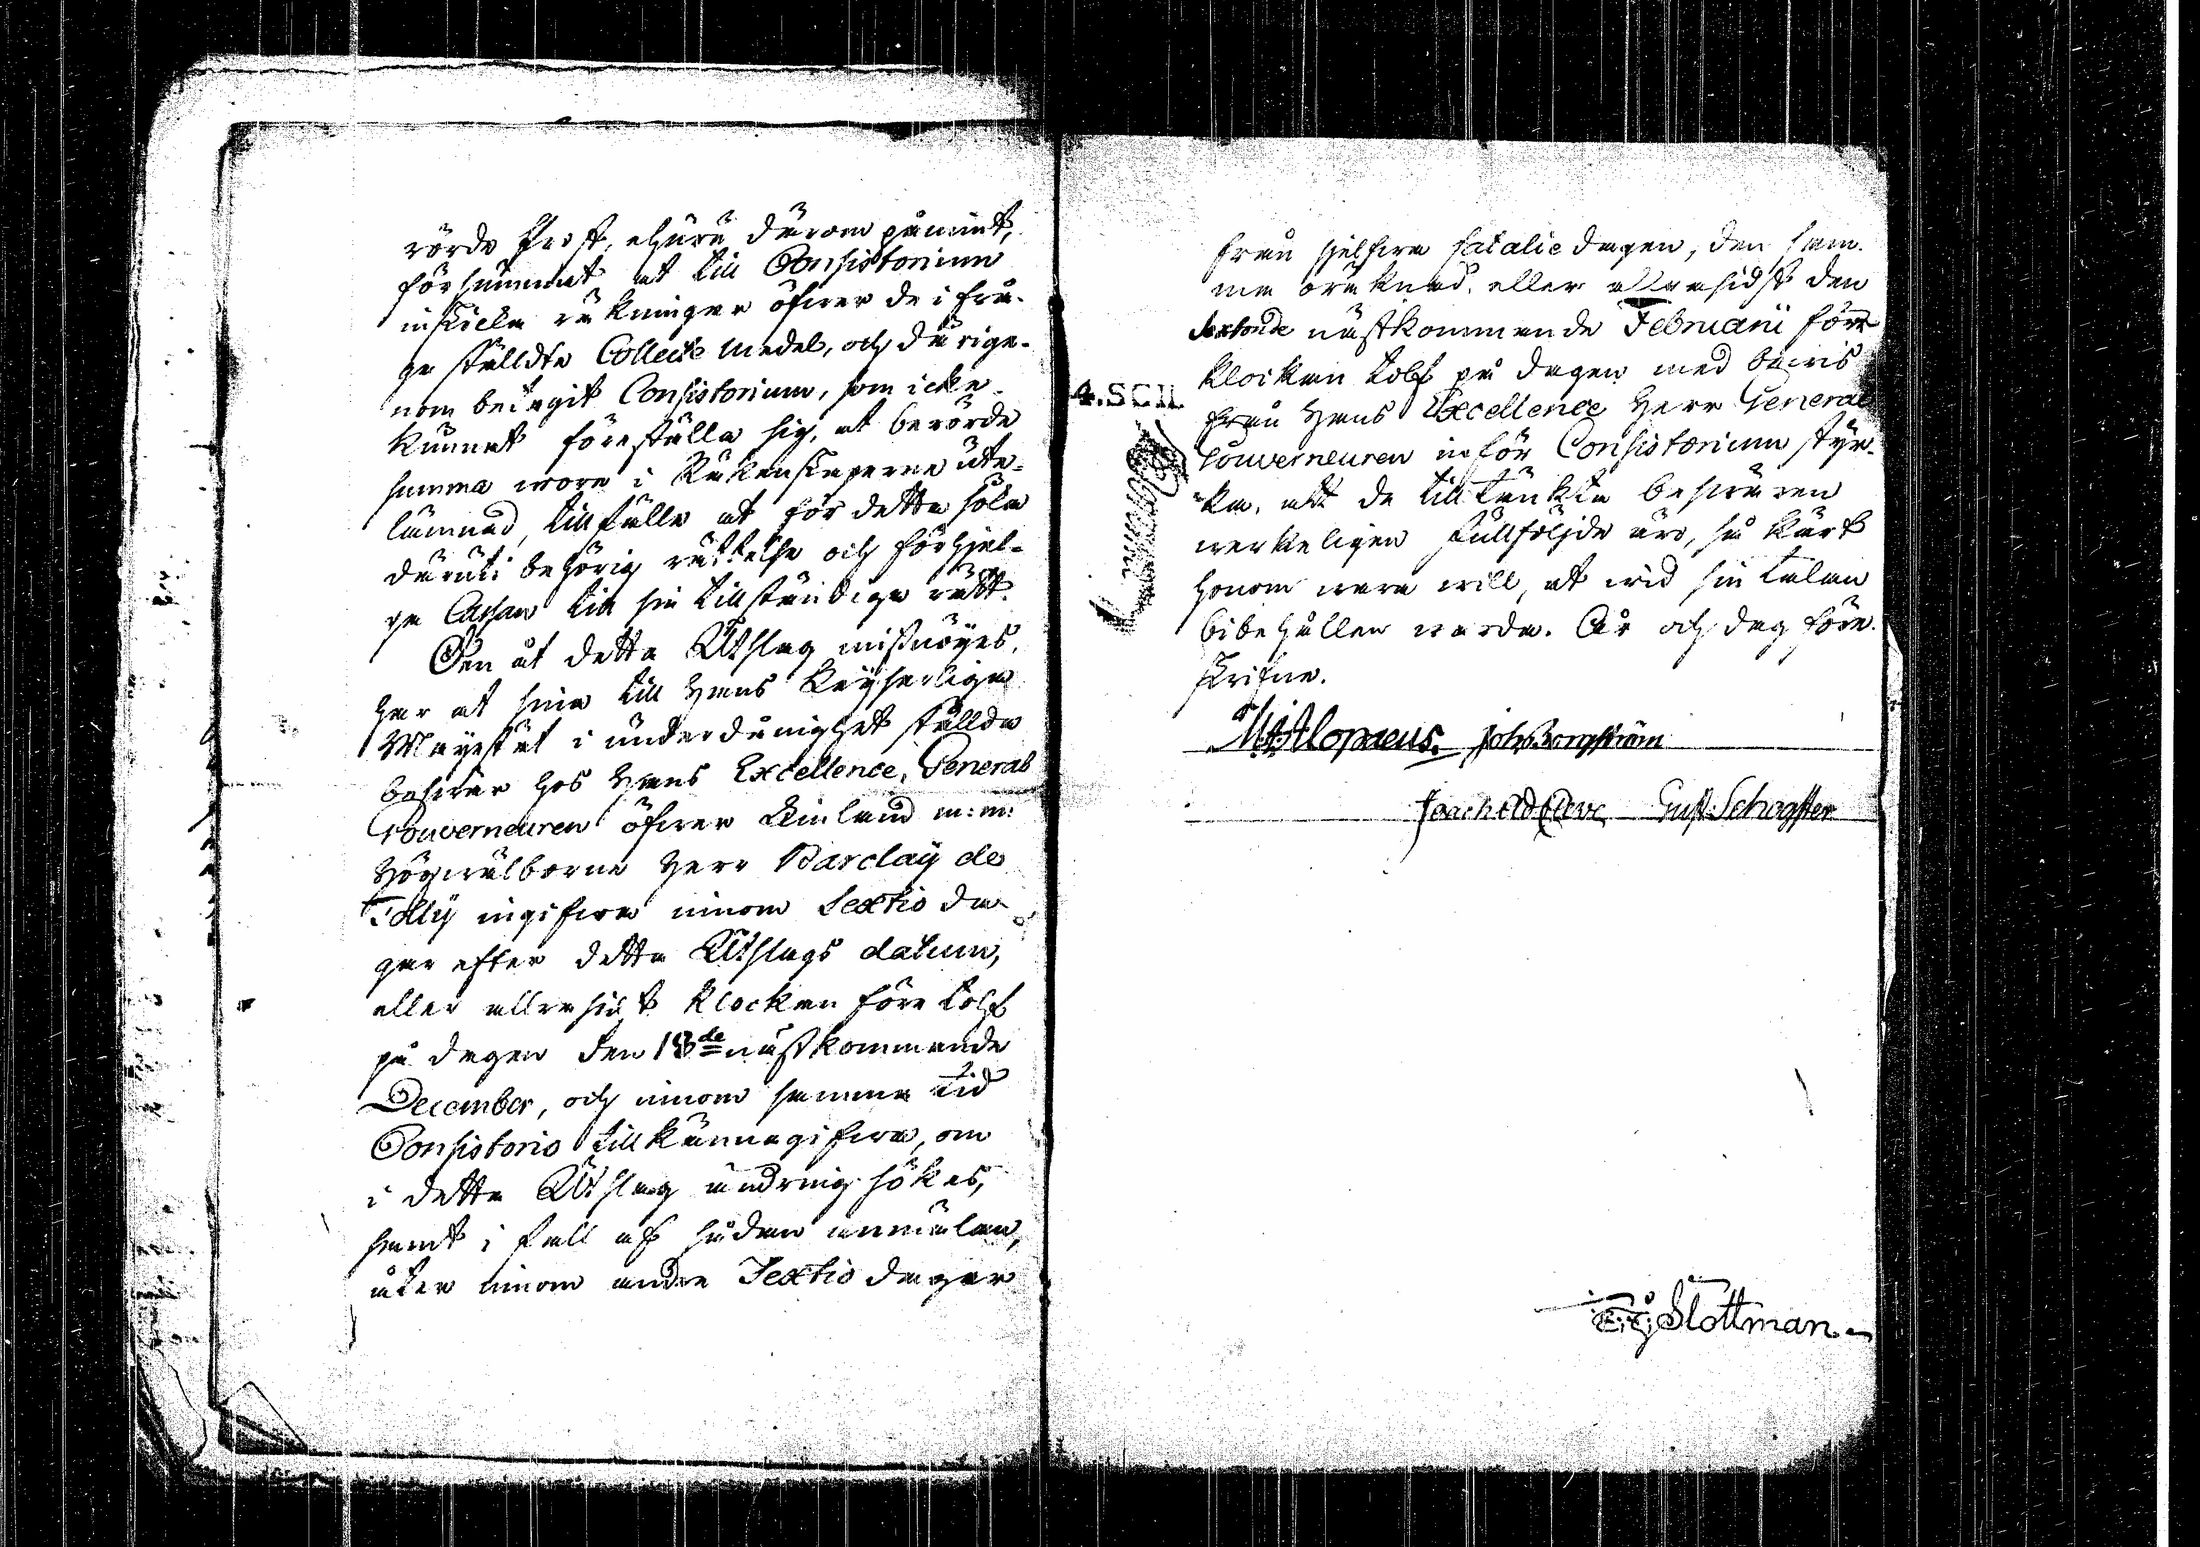 rörde Prost, ehuru därom påmint,
försummat at till Consistorium
insända räkningar öfwer de i frå-
ga ställdte Collecte medel, och därige-
nom betagit Consistorium, som icke
kunnat föreställa sig, at berörde
summa wore i Räkenskaperne ute-
lämnad, tillfälle at för detta
däruti behörig rättelse och förhjel-
pa Cassan till sin tillständiga rätt.
Den åt detta Utslag misnöyes,
har at sina till Hans Keyserliga
Mayestät i underdånighet ställda
beswär hos Hans Excellence, General
Gouverneuren öfwer Finland m: m:
Högwälborne Herr Barclay de
Tolly ingifwa innom Sextio da-
gar efter detta Utslags datum,
eller allrasidst klockan före tolf
på dagen den 18de nästkommande
December, och innom samma tid
Consistorio tillkännagifwa, om
i detta Utslag ändring sökes,
samt i fall af sådan anmälan,
åter innom andra Sextio dagar
från sjelfwa fatalie dagen, den sam-
ma oräknad, eller allrasidst den
nästkommande Februarii före
klockan tolf på dagen med bewis
från Hans Excellence Herr General
Gouverneuren inför Consistorium styr-
ka, att de tilltänkta beswären
werkeligen fullföljde äro, så kärt
honom wara will, at wid sin talan
bibehållen warda. År och dag före-
skrifne.
4.SCII.
M: Alopaeus. Joh. Borgström
Joach Ad Cleve Gust: Schogster
E: G: Slottman.